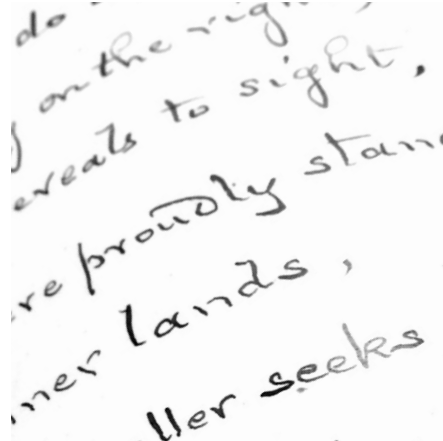 do
on the righ
ereals to sight,
re proudly stand
ner lands,
ller seeks